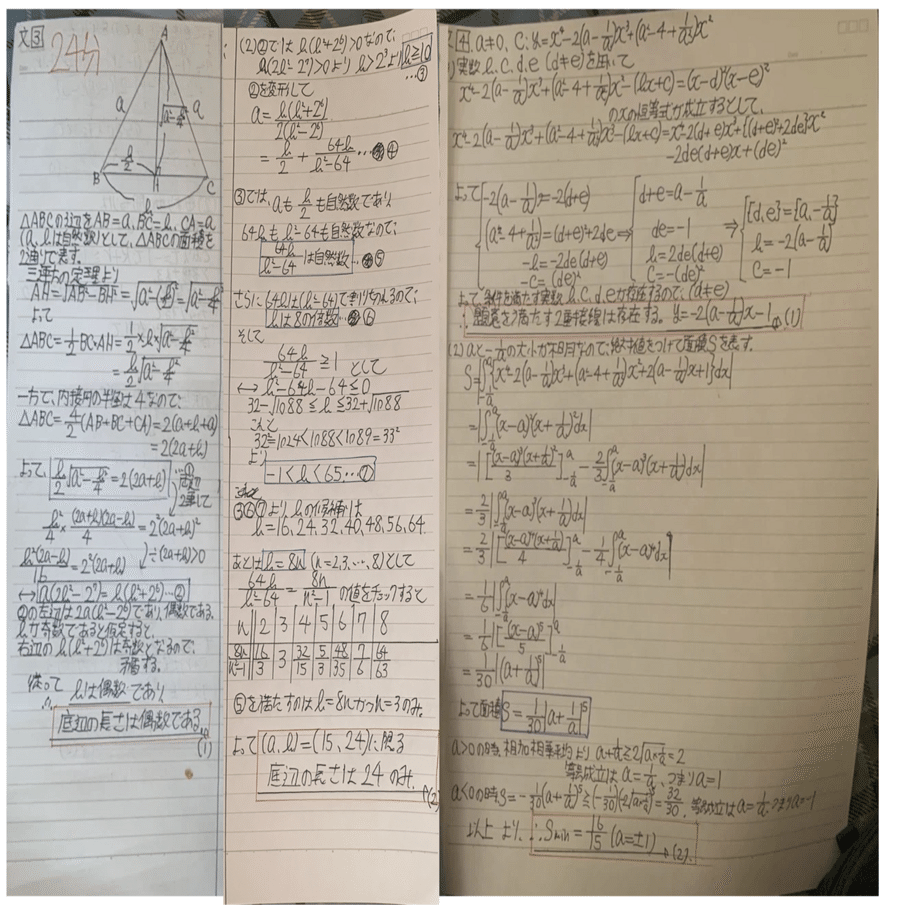 文③
24分
A
a
a
√a²-b²/4
b/2
B
H
C
b
△ABCの辺をAB=a、BC=b、CA=a
(a,bは自然数)として、△ABCの面積を
2通りで表す。
三平方の定理より
AH=√AB²-BH²=√a²-(b/2)²=√a²-b²/4
よって
△ABC=1/2×BC×AH=1/2×b×√a²-b²/4
=b/2√a²-b²/4
一方で、内接円の半径は4なので、
△ABC=4/2(AB+BC+CA)=2(a+b+a)
=2(2a+b)
よって、b/2√a²-b²/4=2(2a+b) …①
両辺2乗して
b²/4×(2a+b)(2a-b)/4=2²(2a+b)²
÷(2a+b)>0
b²(2a-b)/16=2²(2a+b)
⟷a(2b²-2⁷)=b(b²+2⁶)…②
②の左辺は2a(b²-2⁶)であり、偶数である。
bが奇数であると仮定すると、
右辺のb(b²+2⁶)は奇数となるので、
矛盾する。
従って
∴bは偶数であり
底辺の長さは偶数である。
(1)
(2)②ではb(b²+2⁶)>0なので、
a(2b²-2⁷)>0よりb>2³よりb≧10
…③
②を変形して
a=b(b²+2⁶)/2(b²-2⁶)
=b/2+64b/b²-64…④
③では、aもb/2も自然数であり
64bもb²-64も自然数なので、
64b/b²-64は自然数…⑤
さらに64bは(b²-64)で割りきれるので、
bは8の倍数…⑥
そして
64b/b²-64≧1として
⟷b²-64b-64≦0
32-√1088≦b≦32+√1088
これと
32²=1024<1088<1089=33²
より
-1<b<65…⑦
③⑥⑦よりbの候補は
b=16,24,32,40,48,56,64.
あとはb=8n(n=2,3,…,8)として
64b/b²-64=8n/n²-1の値をチェックすると
n 2 3 4 5 6 7 8
8n/n²-1 16/3 3 32/15 5/3 48/35 7/6 64/63
⑤を満たすのはb=8nかつn=3のみ。
よって(a,b)=(15,24)に限る
底辺の長さは24のみ。
(2)
④.a≠0、C:y=x⁴-2(a-1/a)x³+(a²-4+1/a²)x²
)実数b,c,d,e(d≠e)を用いて
x⁴-2(a-1/a)x³+(a²-4+1/a²)x²-(bx+c)=(x-d)²(x-e)²
のxの恒等式が成立するとして、
x⁴-2(a-1/a)x³+(a²-4+1/a²)x²-(bx+c)=x⁴-2(d+e)x³+{(d+e)²+2de}x²
-2de(d+e)x+(de)²
よって
-2(a-1/a)=-2(d+e)
(a²-4+1/a²)=(d+e)²+2de
-b=-2de(d+e)
-c=(de)²
⇒
d+e=a-1/a
de=-1
b=2de(d+e)
c=-(de)²
⇒
{d,e}={a,-1/a}
b=-2(a-1/a)
c=-1
よって、条件を満たす実数b,c,d,eが存在するので、(d≠e)
∴題意を満たす2重接線は存在する。y=-2(a-1/a)x-1 (1)
(2)aと-1/aの大小が不明なので、絶対値をつけて面積Sを表す。
S=|∫[-1/a,a]{x⁴-2(a-1/a)x³+(a²-4+1/a²)x²+2(a-1/a)x+1}dx|
=|∫[-1/a,a](x-a)²(x+1/a)²dx|
=|[(x-a)³(x+1/a)²/3][-1/a,a]-2/3∫[-1/a,a](x-a)³(x+1/a)dx|
=2/3|∫[-1/a,a](x-a)³(x+1/a)dx|
=2/3|[(x-a)⁴(x+1/a)/4][-1/a,a]-1/4∫[-1/a,a](x-a)⁴dx|
=1/6|∫[-1/a,a](x-a)⁴dx|
=1/6|[(x-a)⁵/5][-1/a,a]|
=1/30|(a+1/a)⁵|
よって面積S=1/30|a+1/a|⁵
a>0の時、相加相乗平均よりa+1/a≧2√a×1/a=2
等号成立はa=1/a、つまりa=1
a<0の時、S=-1/30(a+1/a)⁵≧(-1/30)(-2√a×1/a)⁵=32/30、等号成立はa=1/a、つまりa=-1
以上より、∴Smin=16/15(a=±1) (2)